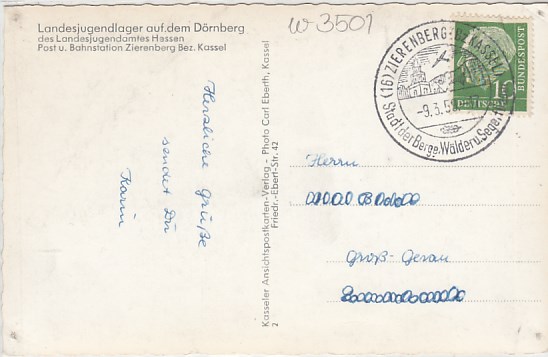 Landesjugendlager auf dem Dörnberg
des Landesjugendamtes Hessen
Post u. Bahnstation Zierenberg Bez. Kassel
W 3501
(16) ZIERENBERG BZ. KASSEL
-9.3.5
Stadt der Berge, Wälder u. Segel
10
DEUTSCHE
BUNDESPOST
Herzliche Grüße
sendet Dir
Karin
Kasseler Ansichtspostkarten-Verlag - Photo Carl Eberth, Kassel
2 Friedr.-Ebert-Str. 42
Herrn
Groß-Gerau